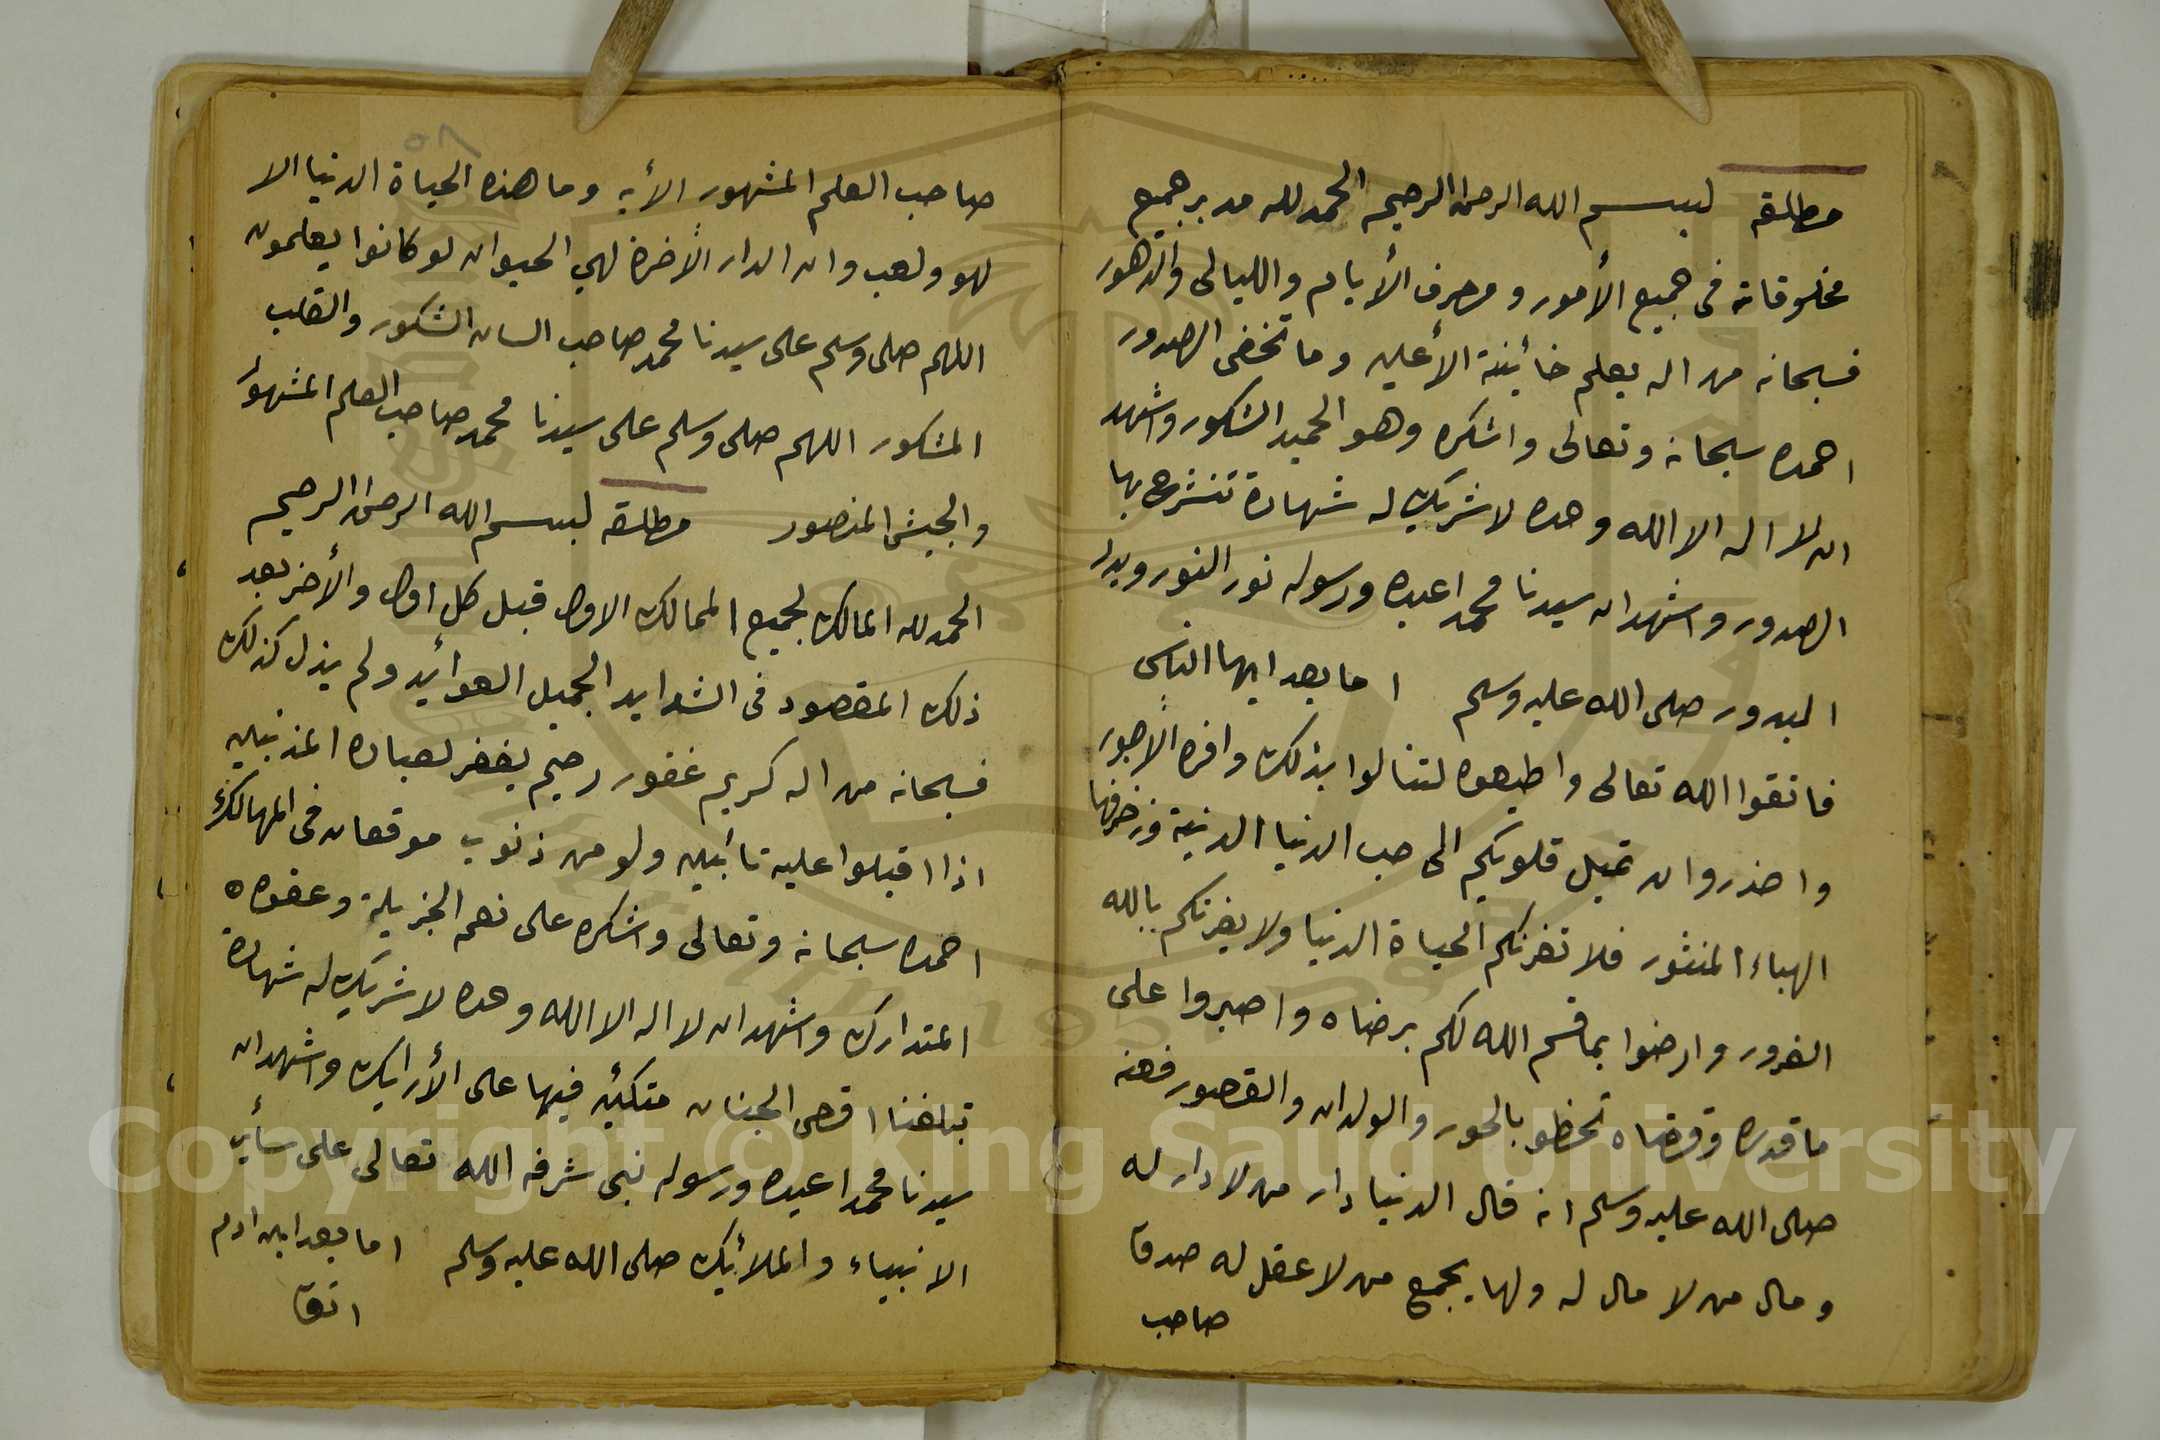 مطلقه لبسم الله الرحمن الرحيم الحمد لله مدبر جميع
مخلوقاته فى جميع الأمور ومصرف الأيام والليالى والدهور
فسبحانه من اله يعلم خائينة الأعين وما تخفى الصدور
احمده سبحانه وتعالى واشكره وهو الحميد الشكور واشهد
ان لا اله الا الله وحده لا شريك له شهادة تنشرح بها
الصدور واشهد ان سيدنا محمدا عبده ورسوله نور النور وبدر
البدور صلى الله عليه وسلم اما بعد ايها الناس
فاتقوا الله تعالى واطيعوه لتنالوا بذلك وافره الأجور
واحذروا ان تميل قلوبكم الى حب الدنيا الدنية وزخرفها
الهباء المنثور فلا تغرنكم الحياة الدنيا ولا يغرنكم بالله
الغرور وارضوا بما قسم الله لكم برضاه واصبروا على
ما قدره وقضاه تحظو بالحور والولدان والقصور فعنه
صلى الله عليه وسلم انه قال الدنيا دار من لا دار له
ومال من لا مال له ولها يجمع من لا عقل له صدق
صاحب
صاحب العلم المشهور الأيه وما هذه الحياة الدنيا الا
لهو ولعب وان الدار الأخرة لهي الحيوان لو كانوا يعلمون
اللهم صلى وسلم على سيدنا محمد صاحب السان الشكور والقلب
المشكور اللهم صلى وسلم على سيدنا محمد صاحب العلم المشهور
والجيش المنصور مطلقه لبسم الله الرحمن الرحيم
الحمد لله المالك لجميع الممالك الاول قبل كل اول والأخر بعد
ذلك المقصود فى الشدايد الجميل العوائد ولم يزل كذلك
فسبحانه من اله كريم غفور رحيم يغفر لعباده المذنبين
اذا اقبلوا عليه تائبين ولو من ذنوب موقعان فى المهالك
احمده سبحانه وتعالى واشكره على نعمه الجزيلة وعفوه
المتدارك واشهد ان لا اله الا الله وحده لا شريك له شهادة
تبلغنا اقصى الجنان متكئين فيها على الأرايك واشهد ان
سيدنا محمدا عبده ورسوله نبى شرفه الله تعالى على سأير
الانبياء والملأيك صلى الله عليه وسلم اما بعد ابن ادم
اتق
Copyright © King Saud University